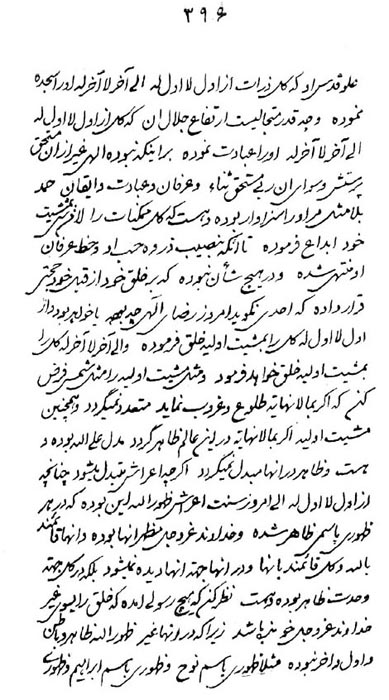 ۳۹۶
علو قدس او که کل ذرات از اول لا اول له الی آخر لا آخر له او را سجده
نموده و چه قدر متجالیست ارتفاع جلال ان که کل از اول لا اول له
الی آخر لا آخر له او را عبادت نموده بر اینکه نبوده الهی غیر از ان مستحق
پرستش و سوای ان ربی مستحق ثناء و عرفان و عبادت و ایقان حمد
بلا مثل مر او را سزاوار بوده و هست که کل ممکنات را لا من شیئ بمشیت
خود ابداع فرموده تا آنکه بنصیب ذروه حب او و حظ عرفان
او منتهی شده و در هیچ شأن نبوده که بر خلق خود از قبل خود حجتی
قرار داده که احدی نگوید امروز رضای الهی چه بوده یا خواهد بود از
اول لا اول له کل را بمشیت اولیه خلق فرموده والی آخر لا آخر له کل را
بمشیت اولیه خلق خواهد فرمود و مثل مشیت اولیه را مثل شمس فرض
کن که اگر بما لا نهایه طلوع و غروب نماید متعدد نمیگردد و همچنین
مشیت اولیه اگر بما لا نهایه در این عالم ظاهر گردد مدل علی الله بوده و
هست و ظاهر در انها مبدل نمیگردد اگر چه اعراش متبدل میشود چنانچه
از اول لا اول له الی امروز سنت اعراش ظهور الله این بوده که در هر
ظهوری باسمی ظاهر شده و خداوند عز و جل منظر انها بوده و انها قائمند
بالله و کل قائمند بانها و در انها جهة انها دیده نمیشود بلکه در کل جهة
وحدت ظاهر بوده و هست نظر کن که هیچ رسولی امده که خلق را بسوی غیر
خداوند عز و جل خوانده باشد زیرا که در انها غیر ظهور الله ظاهر و باطن
و اول و اخر نبوده مثلا ظهوری باسم نوح و ظهوری باسم ابراهیم و ظهوری